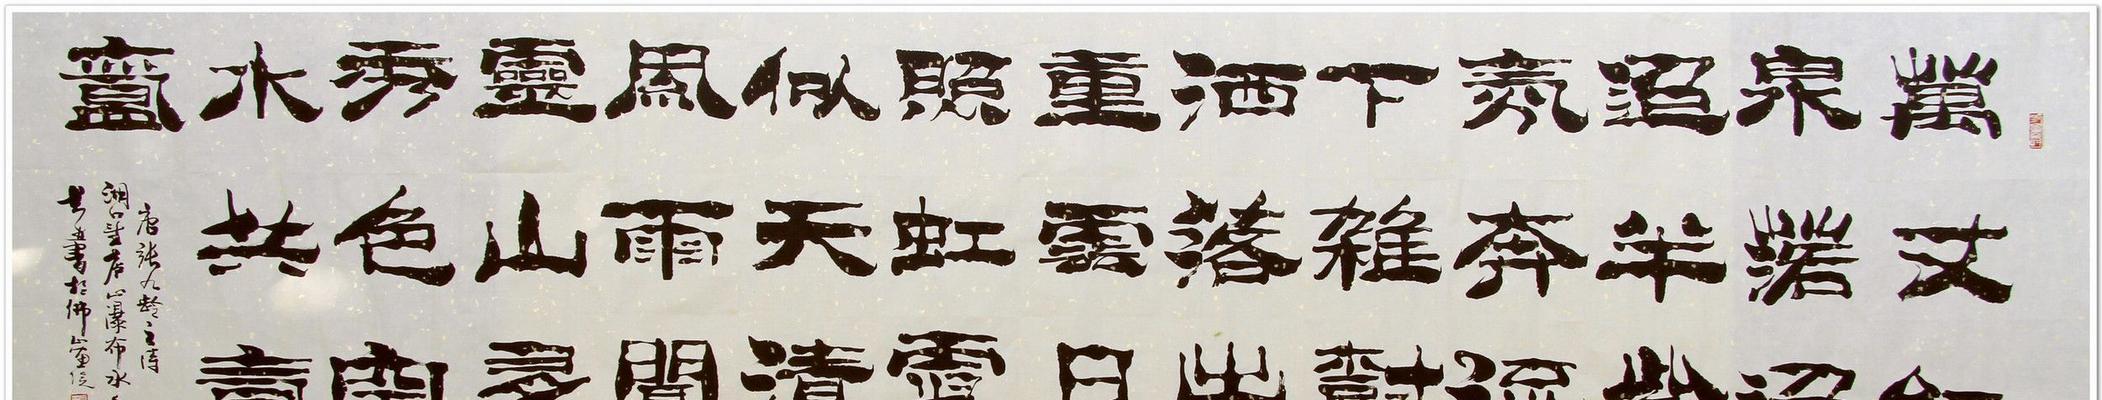 萬丈紅
泉落迢
迢半紫
氛奔流
下雜樹
洒落出
重雲日
照虹霓
似天清
風雨聞
靈山多
秀色空
水共
唐張九齡之詩
湖口望庐山瀑布水
書於佛山